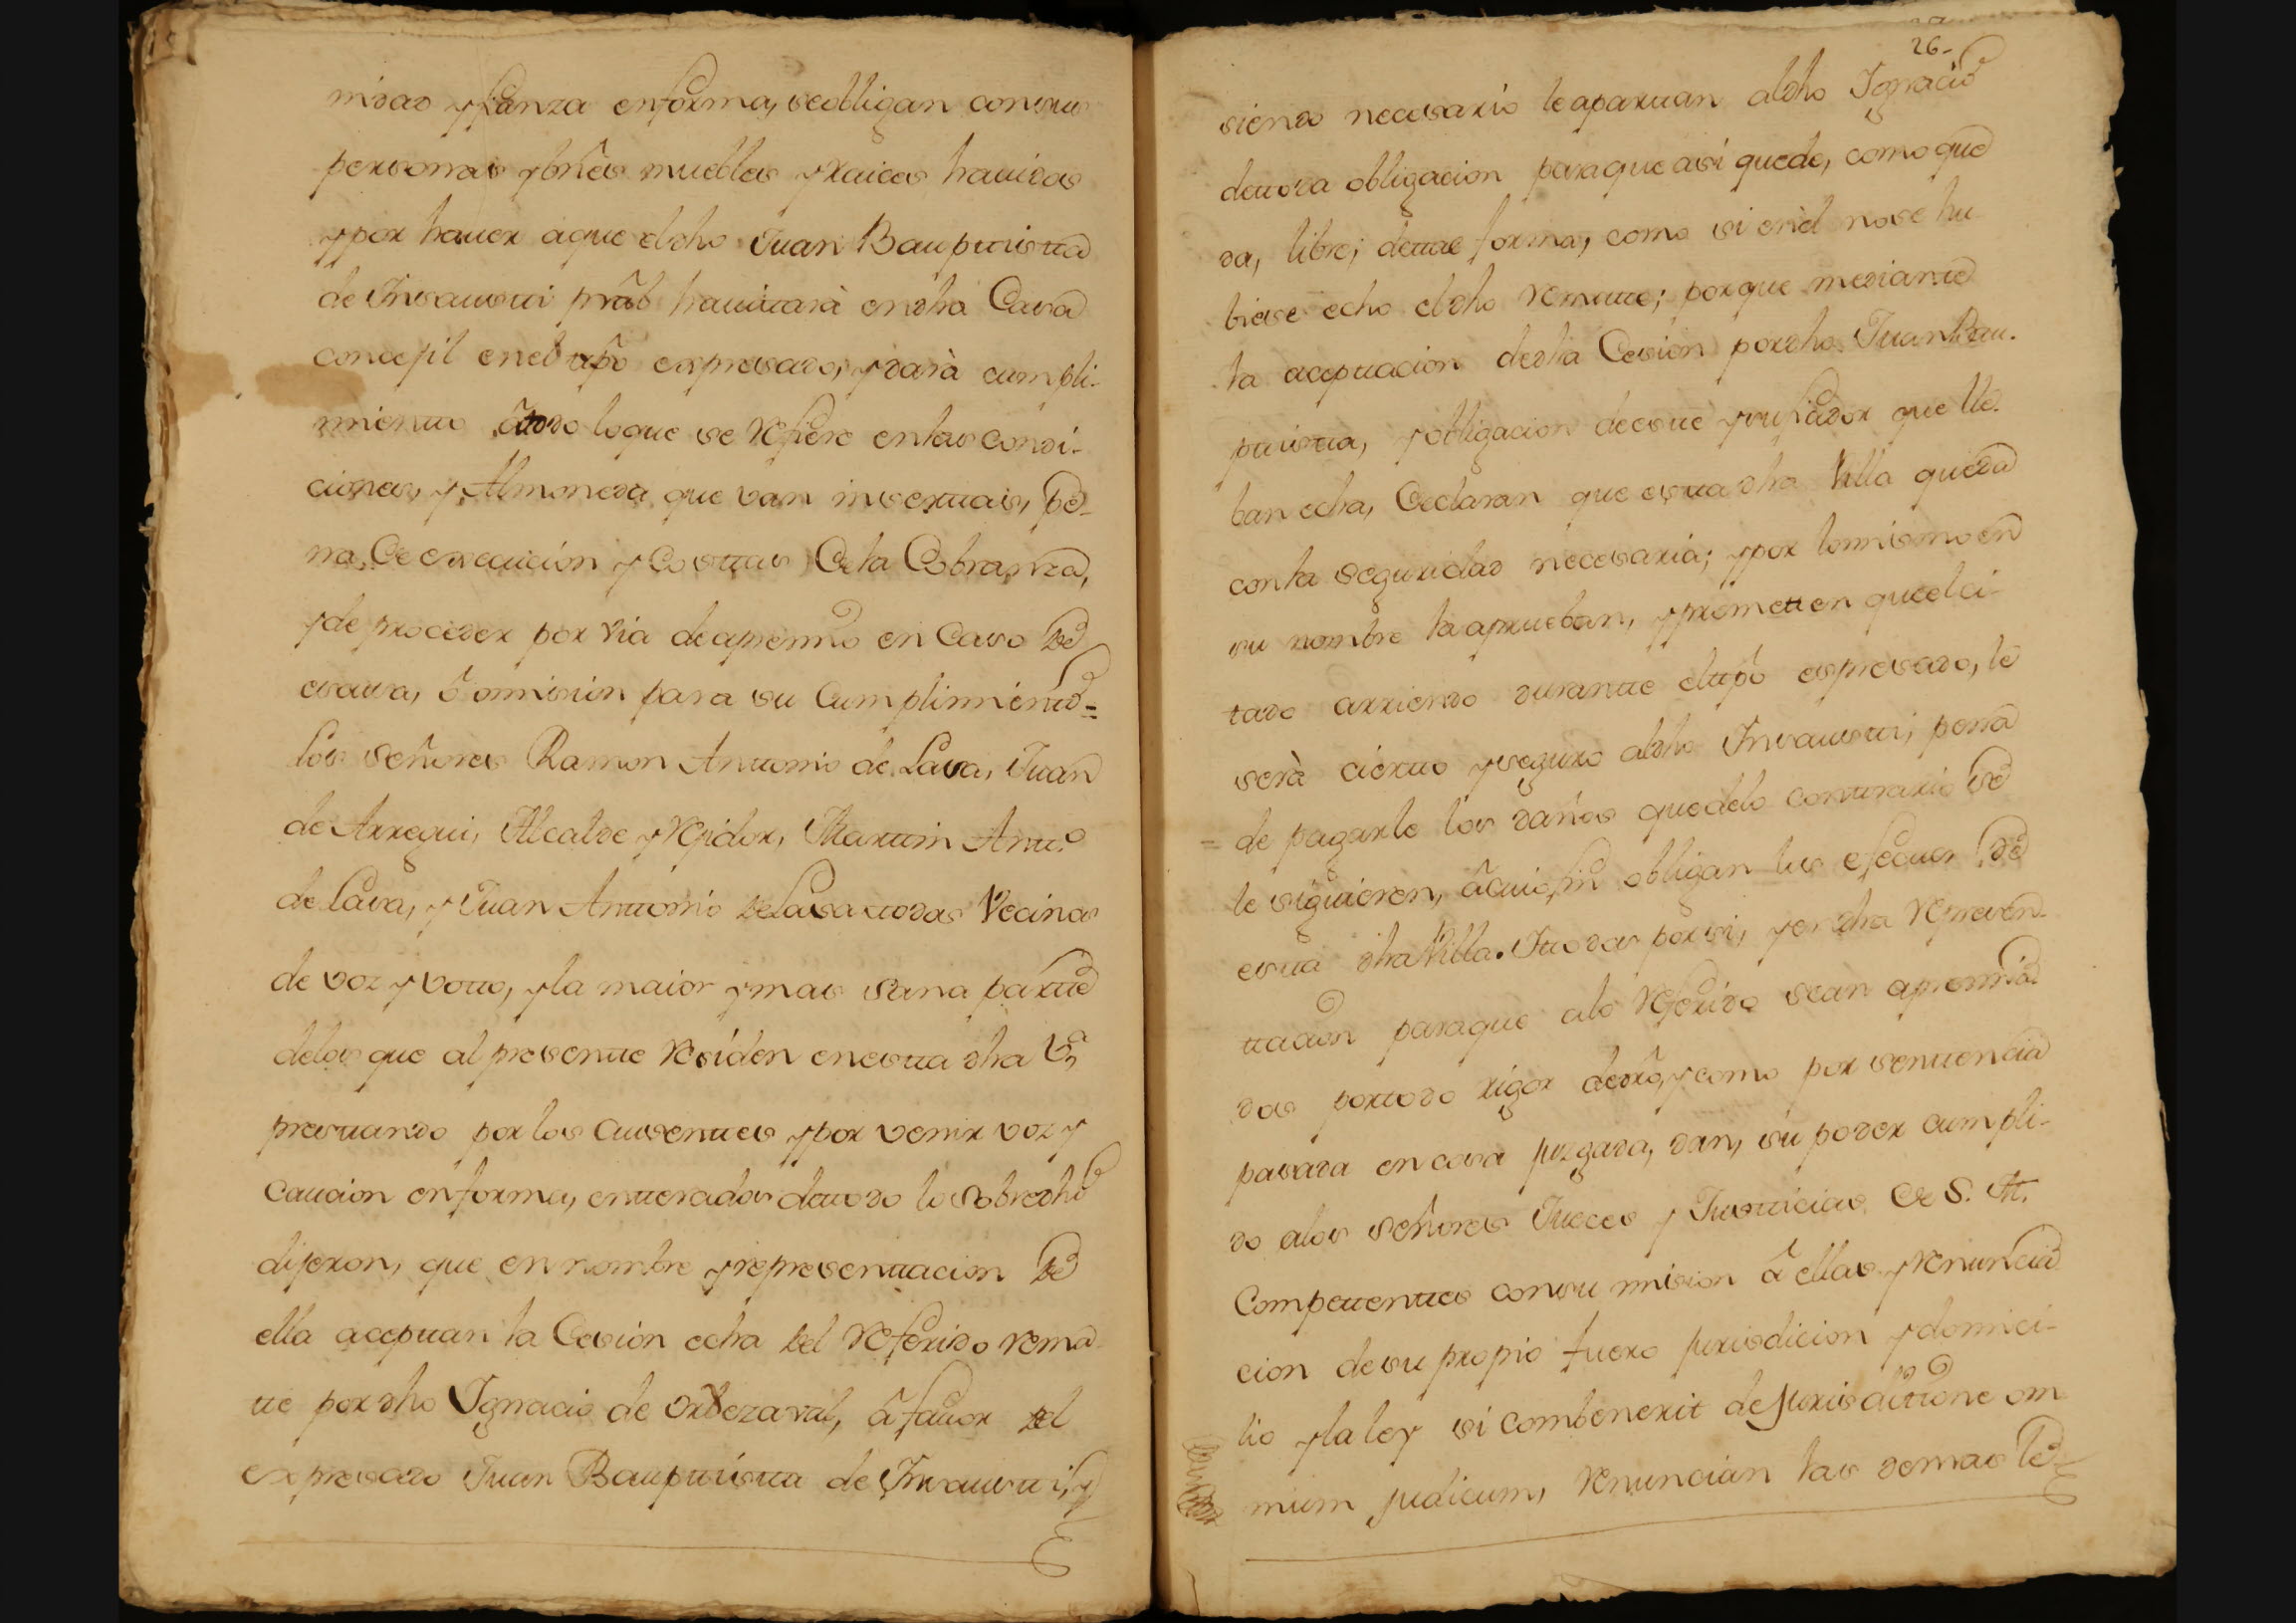 midad y fianza enforma, se obligan consus
personas y bñes muebles y raices havidas
y por haver aque el dho Juan Bauptista
de Insausti pral havitará en dha Casa
concejil en el tpo expresado, y dará cumpli-
miento á todo loque se refiere en las condi-
ciones, y Almoneda que van insertas, pe-
na de execucion y Costtas de la Cobranza,
y de proceder por via de apremio en Caso de
escusa, ó omision para su Cumplimiento =
los señores Ramon Antonio de Lasa, Juan
de Arregui, Alcalde y Rejidor, Martin Antto
de Lasa, y Juan Antonio de Lasa ttodos Vecinos
de voz y votto, y la maior y mas sana partte
delos que al presentte residen en estta dha Va
presttando por los Ausenttes y por venir voz y
caucion enforma, entterados de ttodo lo sobredho
dijeron, que en nombre y representtacion de
ella aceptan la Cesion echa del referido rema
tte por dho Ignacio de Ordezaval, á favor del
expresado Juan Bauptistta de Insaustti, y
26-
siendo necesario le aparttan al dho Ignacio
de ttoda obligacion paraque asi quede, como que
da, libre; de ttal forma, como si en él no se hu
biese echo el dho remtte; porque mediantte
la aceptacion de dha Cesion por dho Juan Bau.
ptistta, y obligacion de estte y su fiador que lle.
ban echa, declaran que estta dha Villa queda
con la seguridad necesaria; y por lo mismo en
su nombre la aprueban, y prometten que el ci-
tado arriendo durantte el ttpo espresado, le
será ciertto y seguro al dho Insaustti; pena
= de pagarle los daños que de lo conttrario se
le siguieren, á cuio fin obligan los efecttos de
estta dha Villa. Y ttodos por si, y en dha represen-
ttacion paraque a lo referido sean apremia
dos por ttodo rigor de dro, y como por senttencia
pasada en cosa juzgada, dan, su poder cumpli-
do a los señores Jueces y Justticias de S. M.
Competenttes con su mision á ellas y renuncia
cion de su propio fuero jurisdicion y domici-
lio y la ley si combenerit de Jurisdittione om
nium judicum, renuncian las demas le